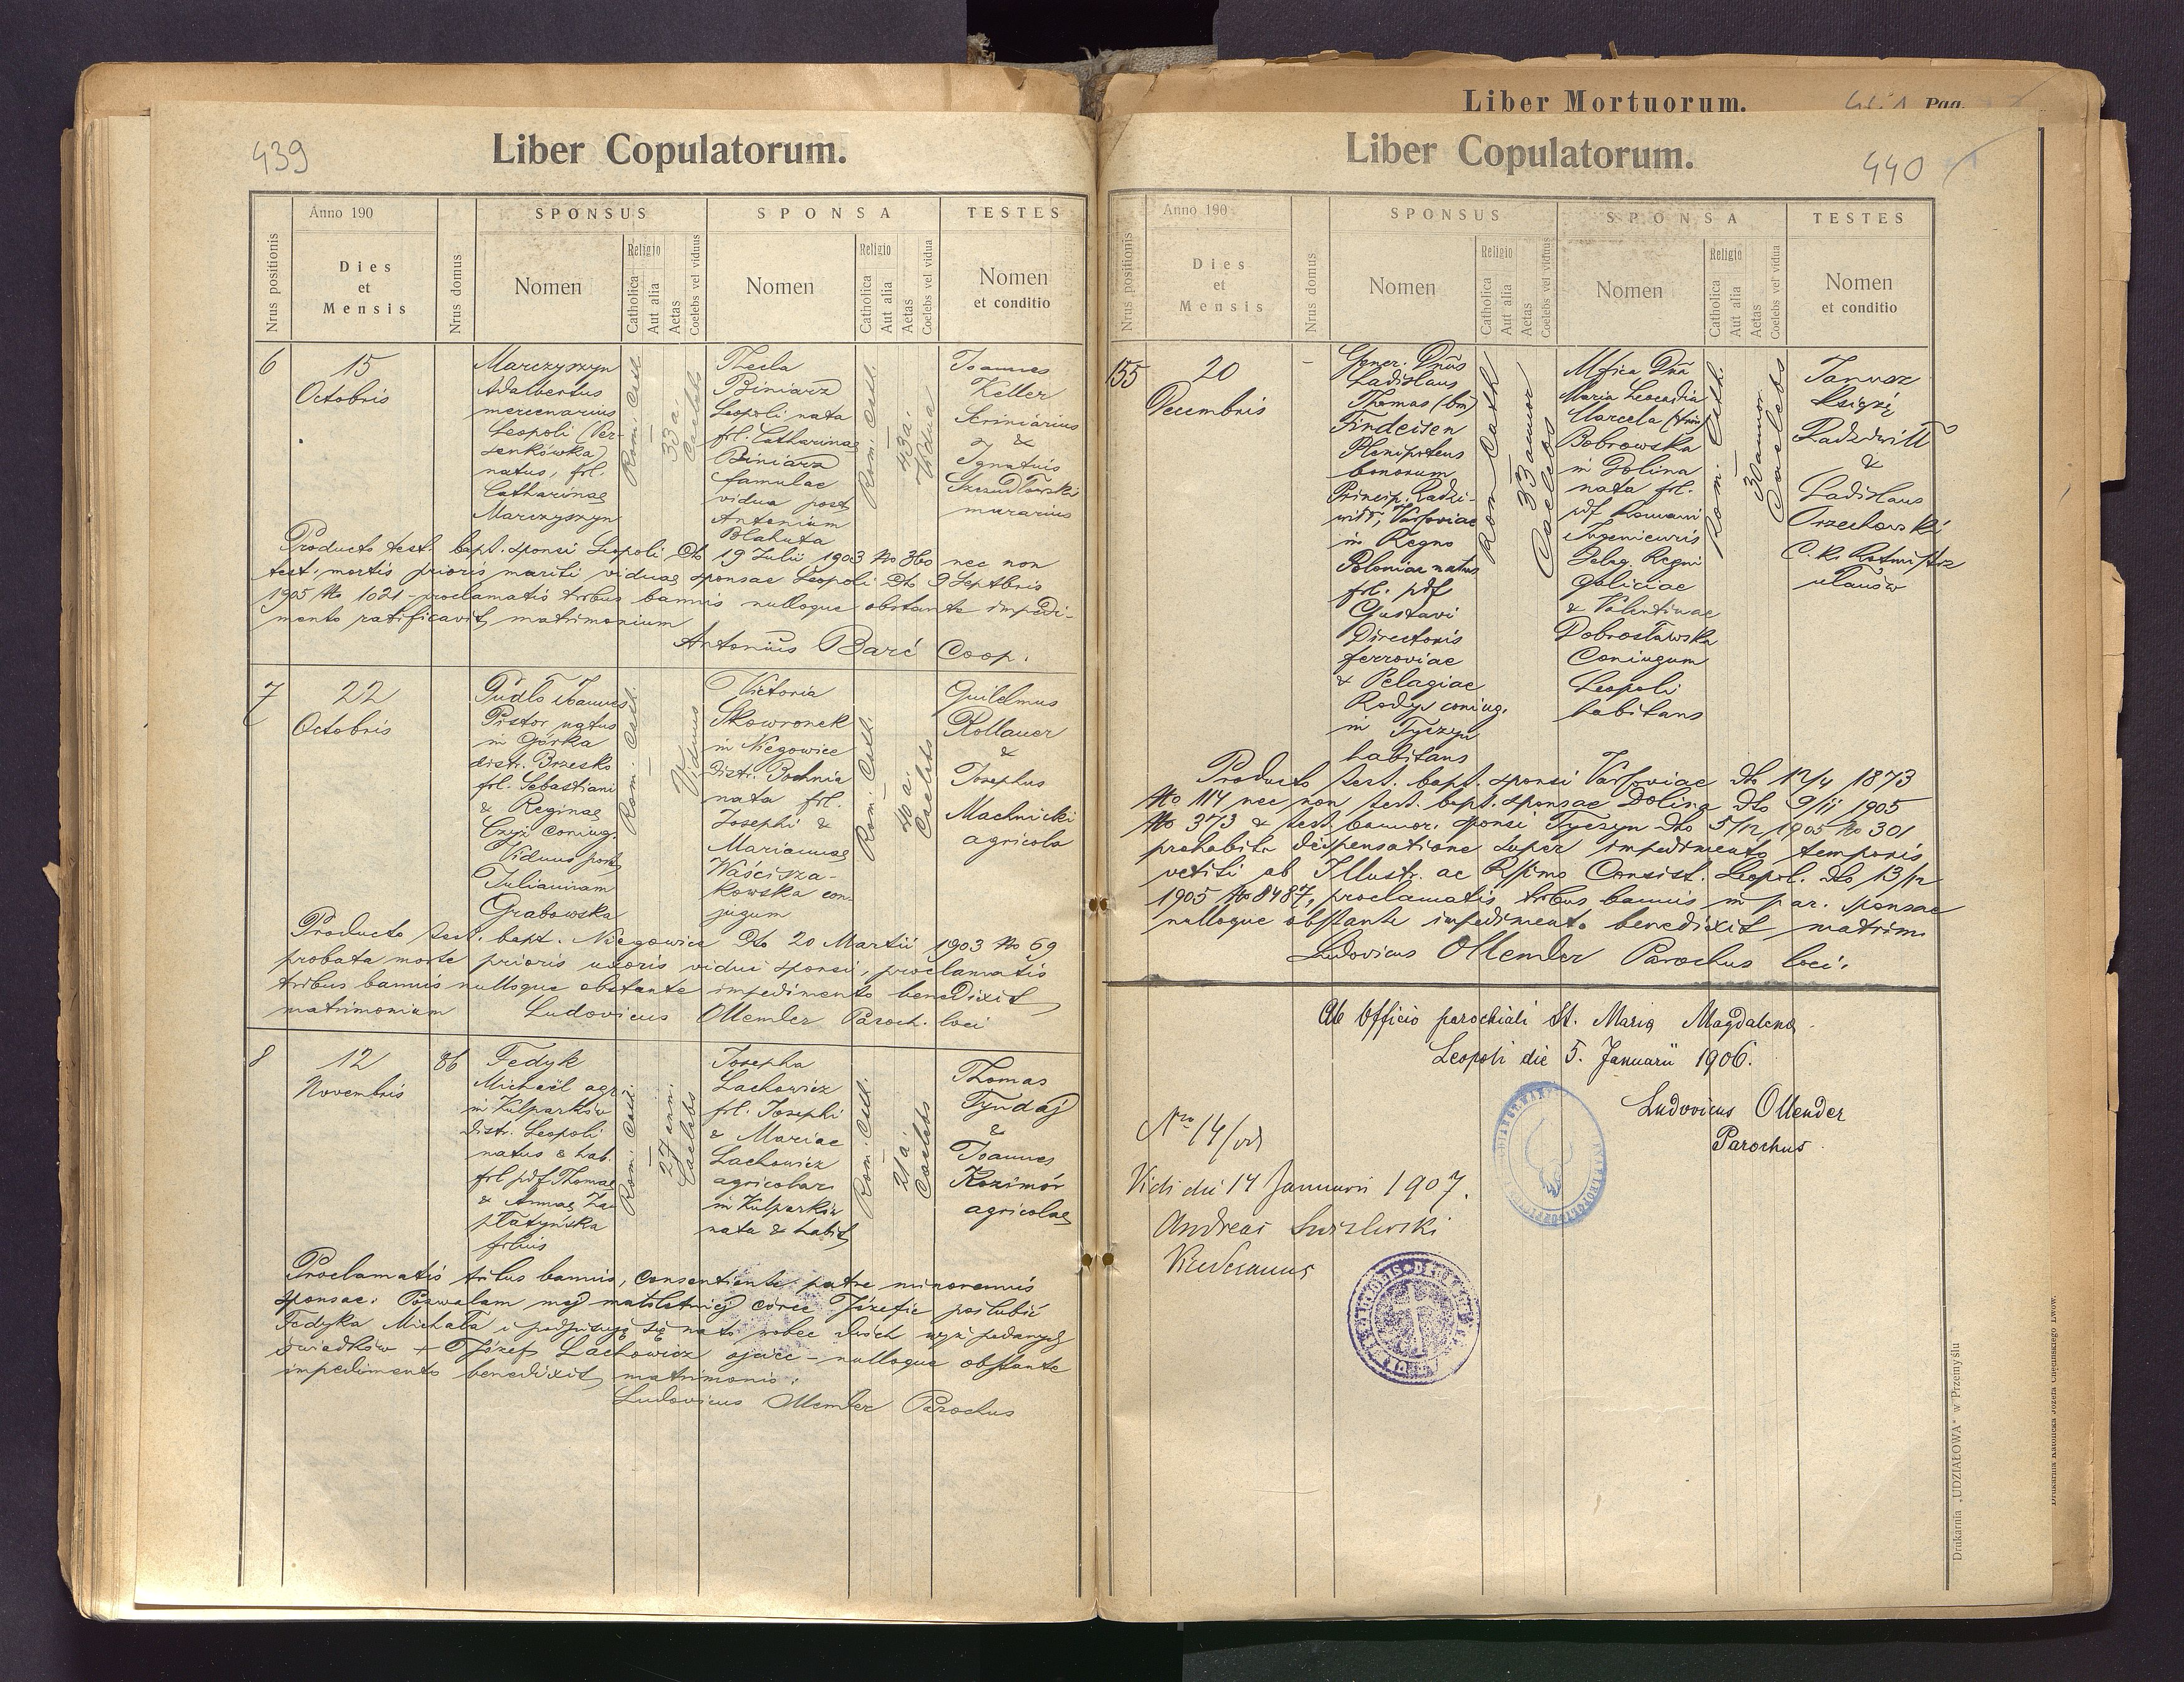 439
Liber Copulatorum.
Nrus positionis
Anno 190
Dies
et
Mensis
Nrus domus
SPONSUS
Nomen
Religio
Catholica
Aut alia
Aetas
Coelebs vel viduus
SPONSA
Nomen
Religio
Catholica
Aut alia
Aetas
Coelebs vel vidua
TESTES
Nomen
et conditio
6
15
Octobris
Marczyszyn
Adalbertus
mercenarius
Leopoli (Per-
senkówka)
natus, fil.
Catharinae
Marczyszyn
Rom. Cath.
33 a.
Caelebs
Thecla
Biniarz
Leopoli nata
fil. Catharinae
Biniarz
famulae
vidua post
Antonium
Blahuta
Rom. Cath.
43 a.
Vidua
Joannes
Keller
Scriniarius
&
Ignatius
Szczudłowski
murarius
Producto test. bapt. sponsi Leopoli Dto 19 Julii 1903 No 360 nec non
test. mortis prioris mariti viduae sponsae Leopoli Dto 9 Septbris
1905 No 1021 - proclamatis tribus bannis nulloque obstante impedi-
mento ratificavit matrimonium
Antonius Barć Coop.
7
22
Octobris
Pudło Joannes
Pistor natus
in Górka
distr. Brzesko
fil. Sebastiani
& Reginae
Czyż coniug.
Viduus post
Juliannam
Grabowska
Rom. Cath.
Viduus
Victoria
Skowronek
in Niegowice
distr. Bochnia
nata fil.
Josephi &
Mariannae
Waścisza-
kowska con-
jugum
Rom. Cath.
40 a.
Caelebs
Guilelmus
Rollauer
&
Josephus
Machnicki
agricola
Producto test. bapt. Niegowice Dto 20 Martii 1903 No 69
probata morte prioris uxoris vidui sponsi, proclamatis
tribus bannis nulloque obstante impedimento benedixit
matrimonium Ludovicus Ollender Paroch. loci
8
12
Novembris
86
Fedyk
Michaël agr.
in Kulparków
distr. Leopoli
natus & hab.
fil pdf Thomae
& Annae Za-
płatyńska
filius
Rom. Cath.
27 ann.
Caelebs
Josepha
Lachowicz
fil. Josephi
& Mariae
Lachowicz
agricolar.
in Kulparków
nata & habit.
Rom. Cath.
21 a.
Caelebs
Thomas
Tyndaj
&
Joannes
Kazimór
agricolae
Proclamatis tribus bannis, consentiente patre minorennis
sponsae: Pozwalam mej małoletniej córce Józefie poślubić
Fedyka Michała i podpisuję się na to wobec dwóch wyż podanych
świadków + Józef Lachowicz ojciec - nulloque obstante
impedimento benedixit matrimonio.
Ludovicus Ollender Parochus
Liber Mortuorum.
Pag.
Liber Copulatorum.
440
Nrus positionis
Anno 190
Dies
et
Mensis
Nrus domus
SPONSUS
Nomen
Religio
Catholica
Aut alia
Aetas
Coelebs vel viduus
SPONSA
Nomen
Religio
Catholica
Aut alia
Aetas
Coelebs vel vidua
TESTES
Nomen
et conditio
155
20
Decembris
-
Gener. Dnus
Ladislaus
Thomas (bin)
Findeisen
Plenipotens
bonorum
Princip. Radzi-
wiłł, Varsoviae
in Regno
Poloniae natus
fil. pdf
Gustavi
Directoris
ferroviae
& Pelagiae
Rodys coniug.
in Tyczyn
habitans
Rom Cath
33 annor
Caelebs
Mfica Dna
Maria Leocadia
Marcela (trin)
Bobrowska
in Dolina
nata fil.
pdf Romani
Ingenieuris
Deleg. Regni
Galiciae
& Valentinae
Dobrosławska
Coniugum
Leopoli
habitans
Rom. Cath.
30 annor.
Caelebs
Janusz
Książę
Radziwiłł
&
Ladislaus
Orzechowski
C. k. Rotmistrz
ułanów
Producto test. bapt. sponsi Varsoviae dto 12/4 1873
No 114 nec non test. bapt. sponsae Dolina dto 9/11 1905
No 373 & test. bannor. sponsi Tyczyn dto 5/12 1905 No 301
prohabita dispensatione super impedimento temporis
vetiti ab Illustr. ac Rssimo Consist. Leopol. dto 13/12
1905 No 8487, proclamatis tribus bannis in par. sponsae
nulloque obstante impedimento benedixit matrim.
Ludovicus Ollender Parochus loci.
Ab Officio parochiali St. Mariae Magdalenae.
Leopoli die 5. Januarii 1906.
Ludovicus Ollender
Parochus
Nro 14/vd
Vidi die 14 Januarii 1907.
Andreas
Vicedecanus
Drukarnia „UDZIAŁOWA“ w Przemyślu
Drukarnia Katolicka Józefa Chęcińskiego Lwów.